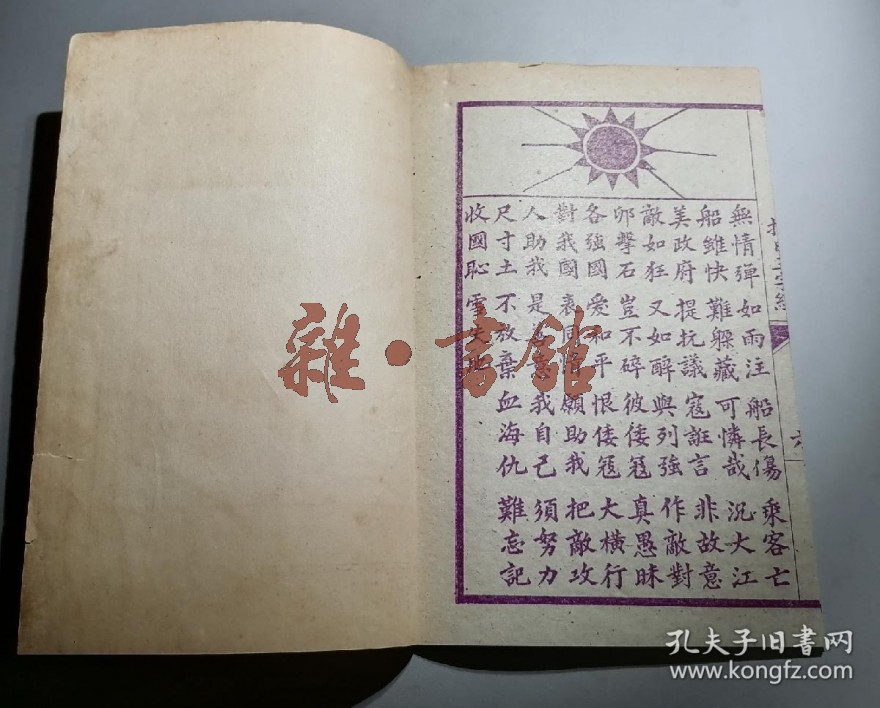 無情彈 如雨注 船長傷 乘客亡
船雖快 難躲藏 可憐哉 沉大江
美政府 提抗議 寇誑言 非故意
敵如狂 又如醉 與列強 作敵對
卵擊石 豈不碎 彼倭寇 真愚昧
各強國 愛和平 恨倭寇 大橫行
對我國 表同情 願助我 把敵攻
人助我 是意 我自己 須努力
尺寸土 不放棄 血海仇 難忘記
收國恥 雪失
雜·書館
孔夫子旧书网
www.kongfz.com